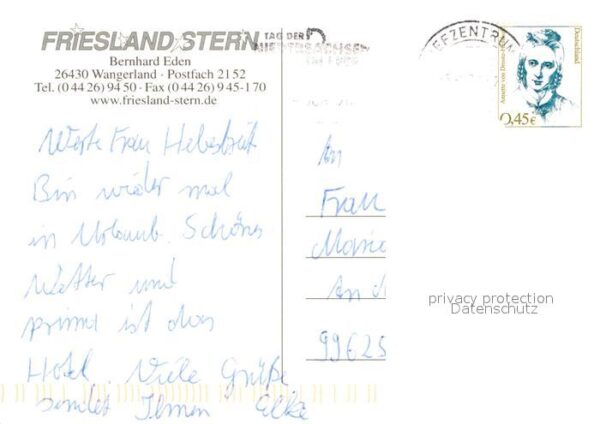 FRIESLAND STERN
Bernhard Eden
26430 Wangerland · Postfach 21 52
Tel. (0 44 26) 94 50 · Fax (0 44 26) 9 45-170
www.friesland-stern.de
TAG DER
NIEDERSACHSEN
EFZENTRUM
Deutschland
Annette von Droste
0,45€
Werte Frau
Bin wieder mal
in Urlaub. Schönes
Wetter und
prima ist das
Hotel. Viele Grüße
sendet Ihnen Elke
An
Frau
Maria
An d
99625
privacy protection
Datenschutz